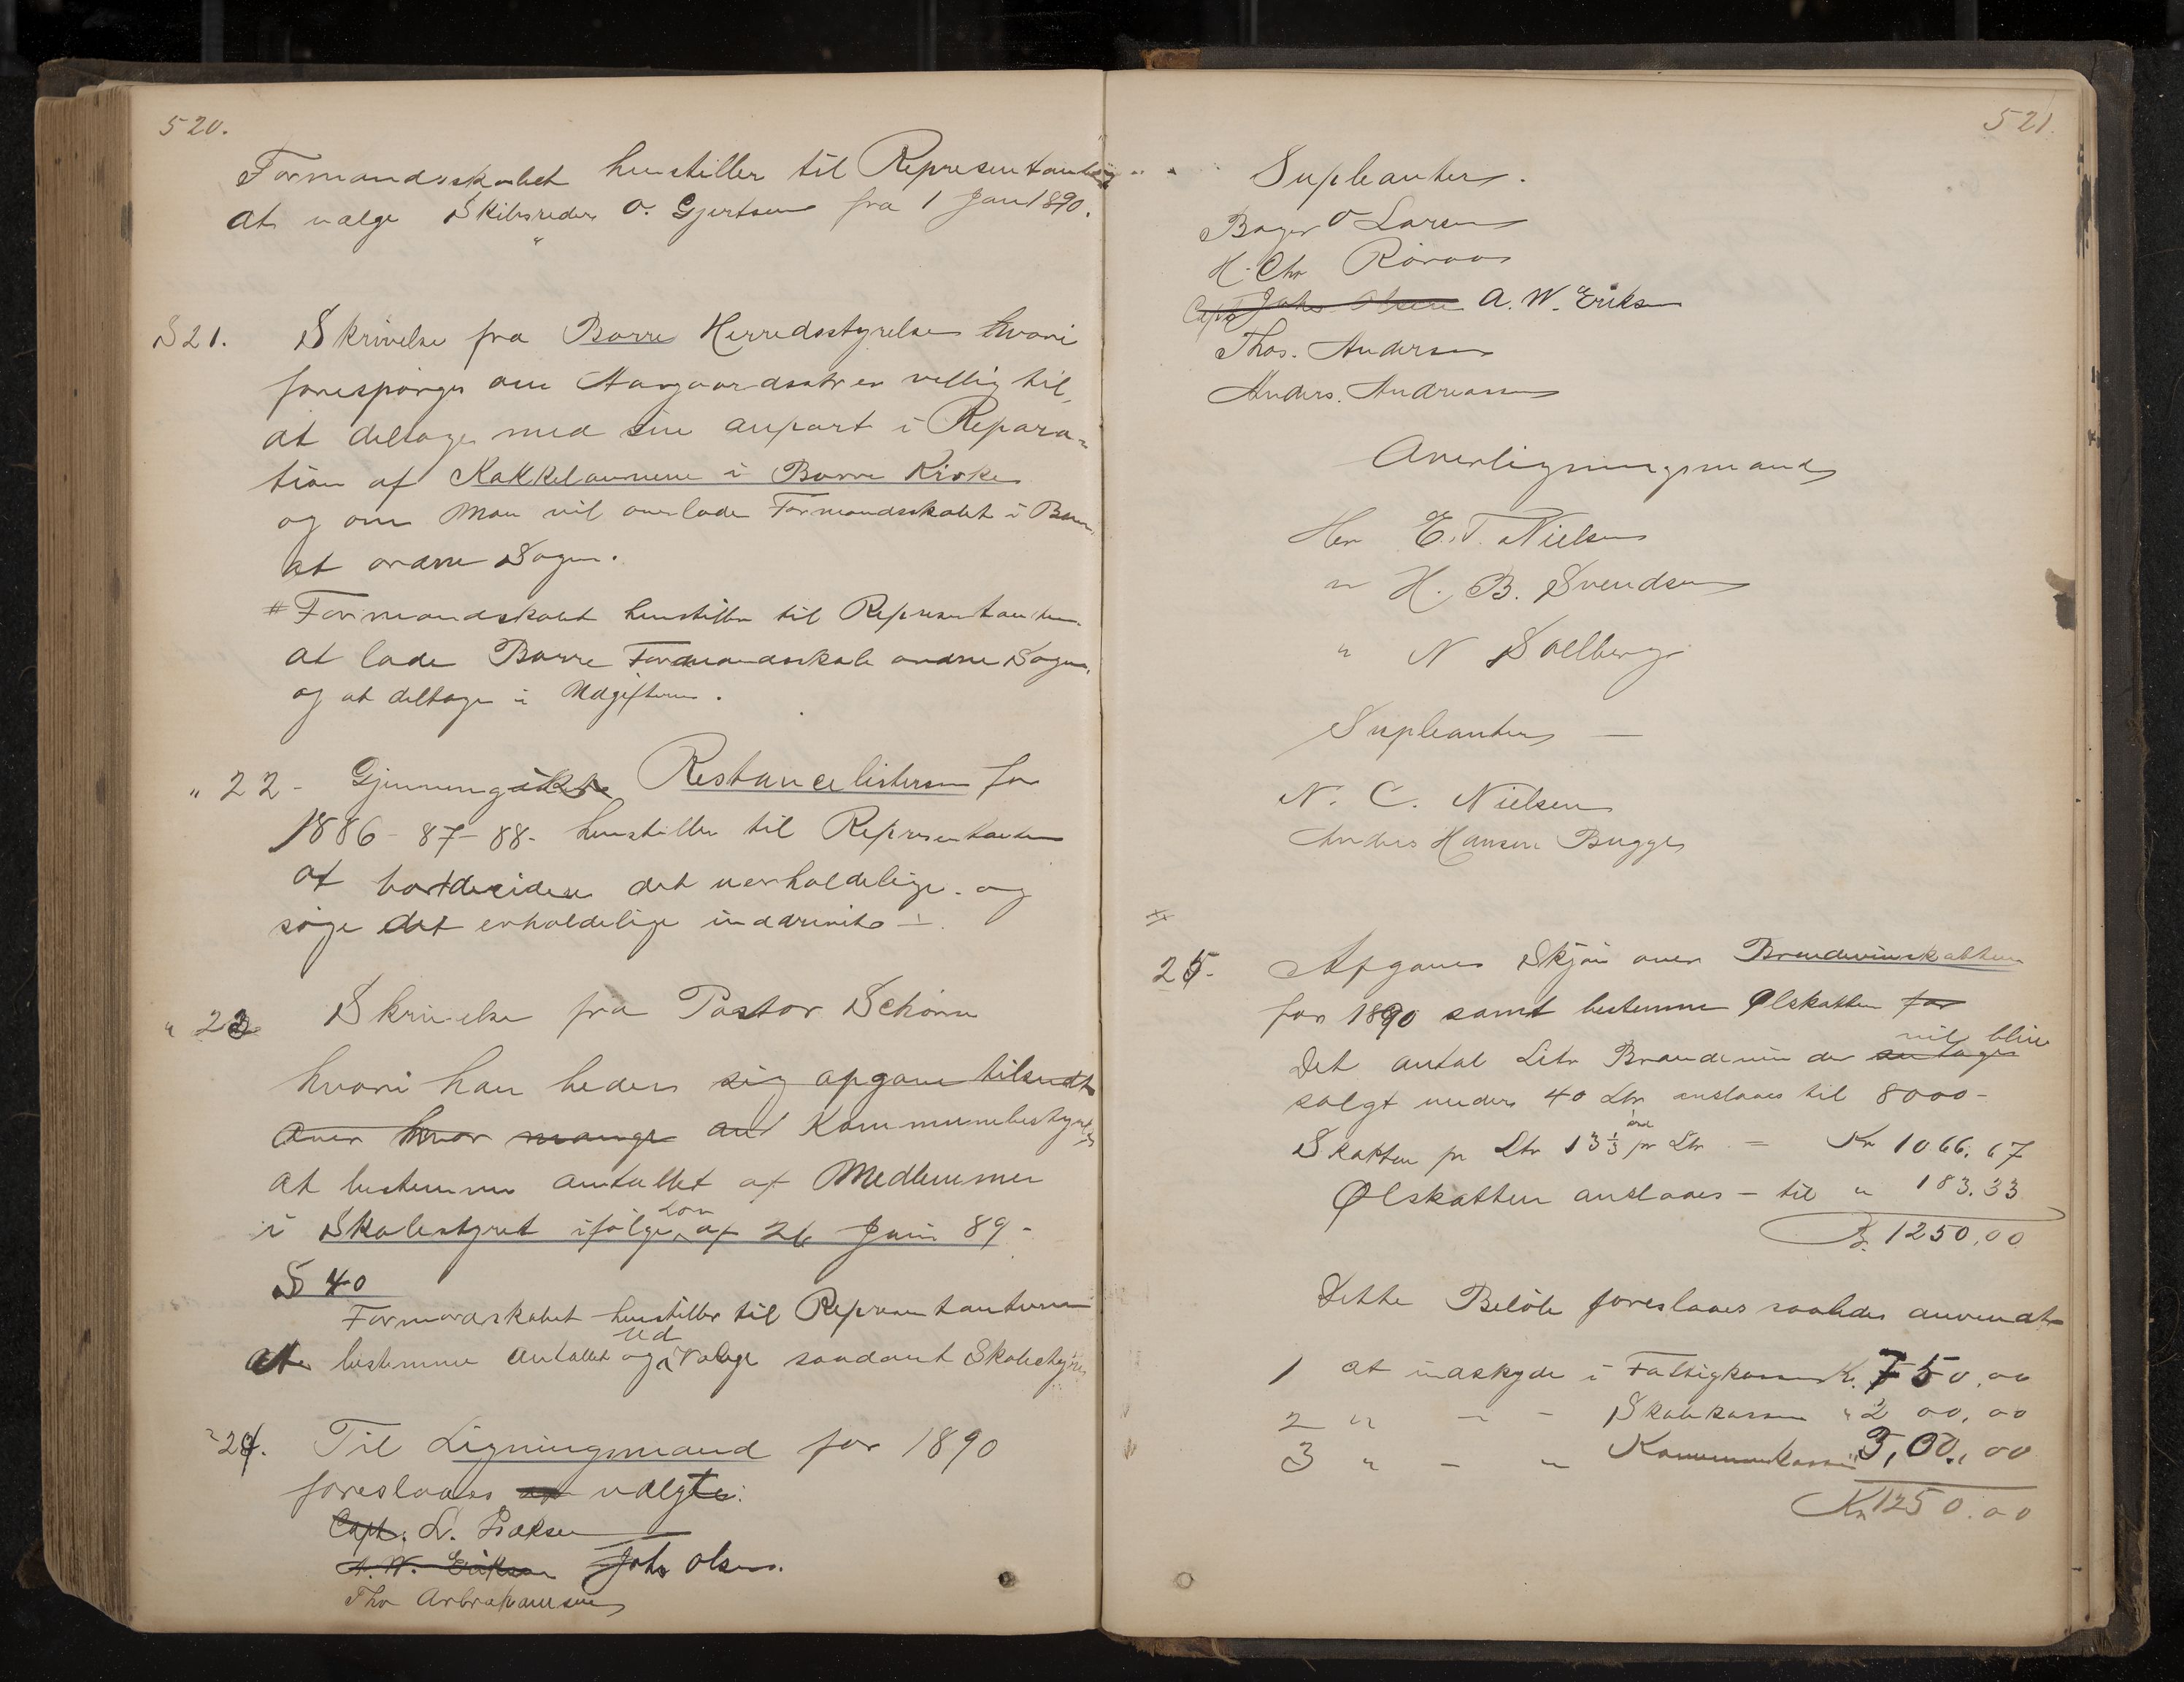 520.
Formandsskabet henstiller til Representanterne
at vælge Skibsreder O. Gjertsen fra 1 Jan 1890.
§ 21. Skrivelse fra Borre Herredsstyrelse hvori
forespørges om Aasgaardsstr er villig til,
at deltage med sin anpart i Repara-
tion af Kakkelovnene i Borre Kirke
og om Man vil overlade Formandsskabet i Borre
at ordne Sagen.
# Formandskabet henstiller til Representanterne
at lade Borre Formandsskab ordne Sagen,
og at deltage i Udgifterne.
" 22 - Gjennemgikes Restancelisterne for
1886 - 87 - 88 - henstilles til Representanterne
at bortdecidere det uerholdelige - og
søge det erholdelige inddrevet -
" 23 Skrivelse fra Pastor Schönn
hvori han beder sig opgave tilsendt
over hvor mange and Kommunebestyrelsen
at bestemme antallet af Medlemmer
i Skolestyret ifølge Lov af 26 Juni 89 -
§ 40
Formandskabet henstiller til Representanterne
at bestemme Antallet og Ud vælge saadant Skolestyre
" 24. Til Ligningsmænd for 1890
foreslaaes at valgte:
Capt. L. Isaksen
A. W. Eriksen Johs Olsen.
Tho Arbrahamsen
521.
Supleanter.
Bager O Larsen
H. Chr Röraas
Capt Johs Olsen A. W. Eriksen
Thos. Andersen
Anders. Andreassen
Overligningsmænd
Her E. T. Nielsen
" H. B. Svendsen
" N Sollberg
Supleanter —
N. C. Nielsen
Anders Hansen Bugge
25. Afgaves Skjøn over Brændevinskatten
for 1890 samt bestemme Ølskatten for
vil blive
Det antal Litr Brændevin der antages
solgt under 40 Ltr anslaaes til 8000 -
Skatten pr Ltr 13 1/3 øre pr Ltr = Kr 1066.67
Ølskatten anslaaes - til " 183.33
Kr. 1250,00
Dette Beløb foreslaaes saaledes anvendt
1 at indskyde i Fattigkassen Kr. 750,00
2 " - - Skolekassen " 200,00
3 " - " Kommunekassen " 3,00,00
Kr 1250.00